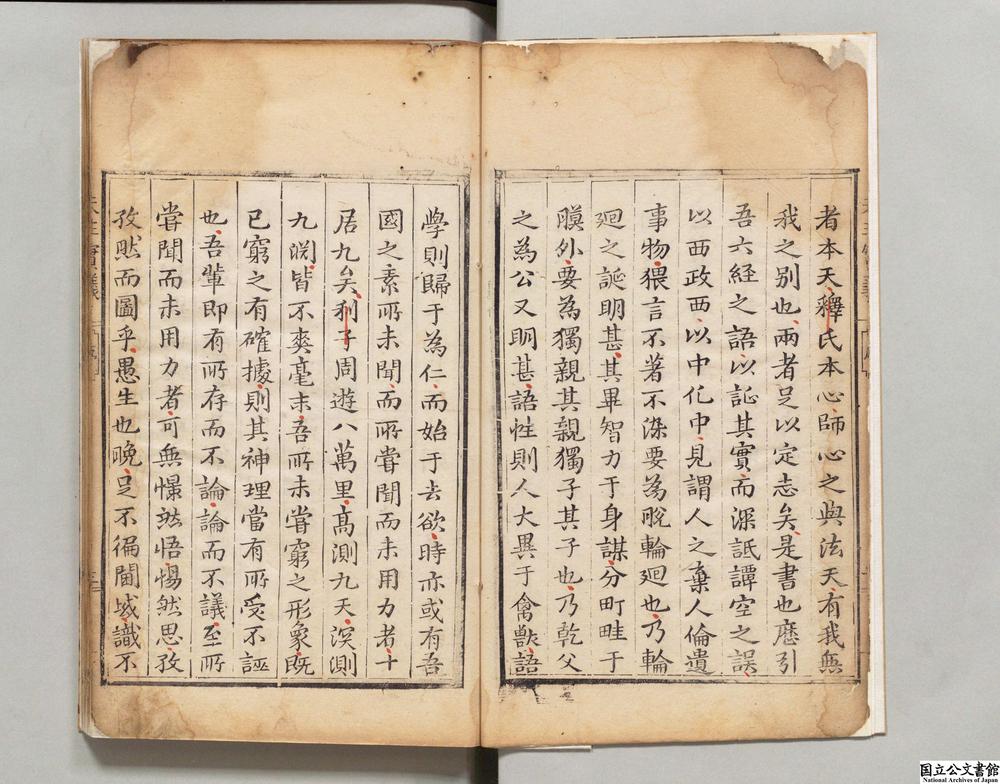 者本天釋氏本心師心之與法天有我無
我之別也兩者足以定志矣是書也歷引
吾六經之語以証其實而深詆譚空之誤
以西政西以中化中見謂人之棄人倫遺
事物猥言不著不染要為脫輪廻也乃輪
廻之誕明甚其畢智力于身謀分町畦于
膜外要為獨親其親獨子其子也乃乾父
之為公又明甚語性則人大異于禽獸語
學則歸于為仁而始于去欲時亦或有吾
國之素所未聞而所嘗聞而未用力者十
居九矣利子周遊八萬里高測九天深測
九淵皆不爽毫末吾所未嘗窮之形象既
已窮之有確據則其神理當有所受不誣
也吾輩即有所存而不論論而不議至所
嘗聞而未用力者可無憬然悟惕然思孜
孜然而圖乎愚生也晚足不徧閫域識不
天主實義
序
国立公文書館
National Archives of Japan